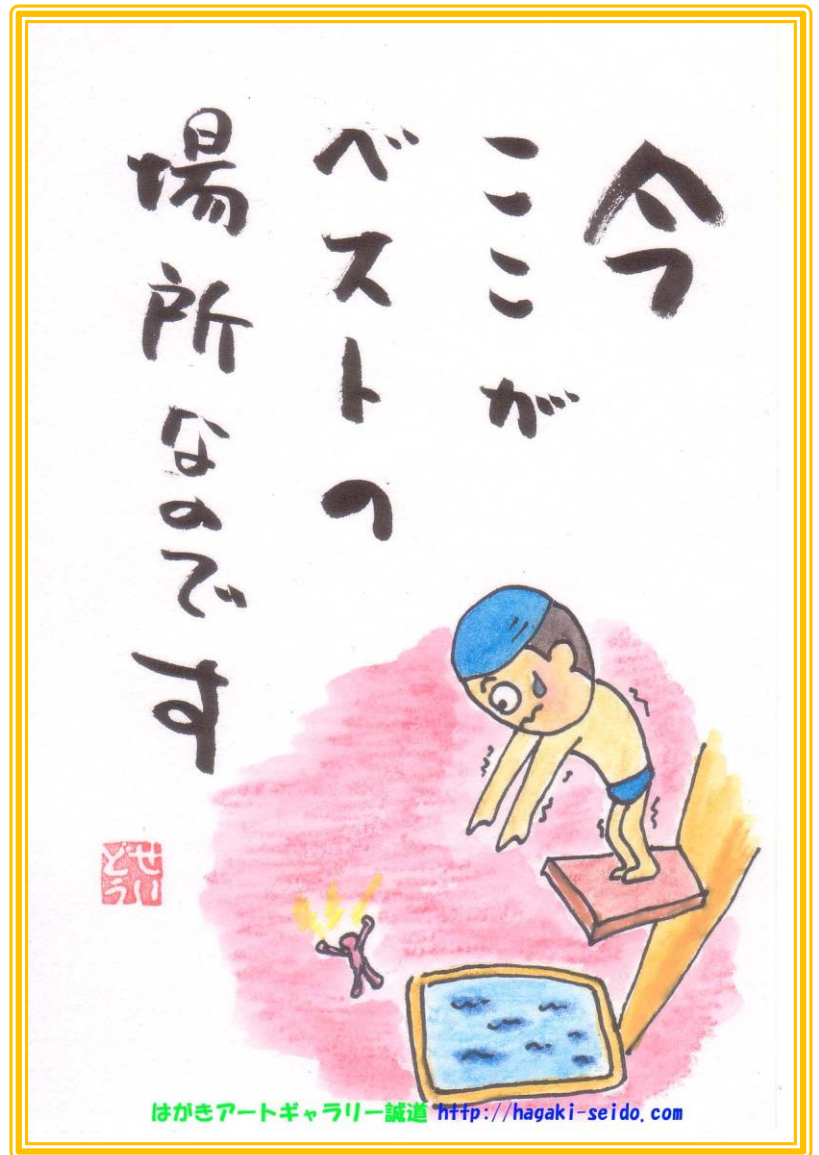 今
ここが
ベストの
場所なのです
せい
どう
はがきアートギャラリー誠道 http://hagaki-seido.com